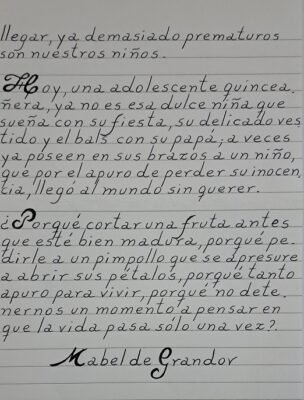 llegar, ya demasiado prematuros
son nuestros niños.
Hoy, una adolescente quincea.
ñera, ya no es esa dulce niña que
sueña con su fiesta, su delicado ves
tido y el bals con su papá; a veces
ya poseen en sus brazos a un niño,
que por el apuro de perder su inocen
tia, llegó al mundo sin querer.
¿Porqué cortar una fruta antes
que esté bien madura, porqué pe.
dirle a un pimpollo que se apresure
a abrir sus pétalos, porqué tanto
apuro para vivir, porqué no dete.
nernos un momento a pensar en
que la vida pasa sólo una vez?.
Mabel de Grandov